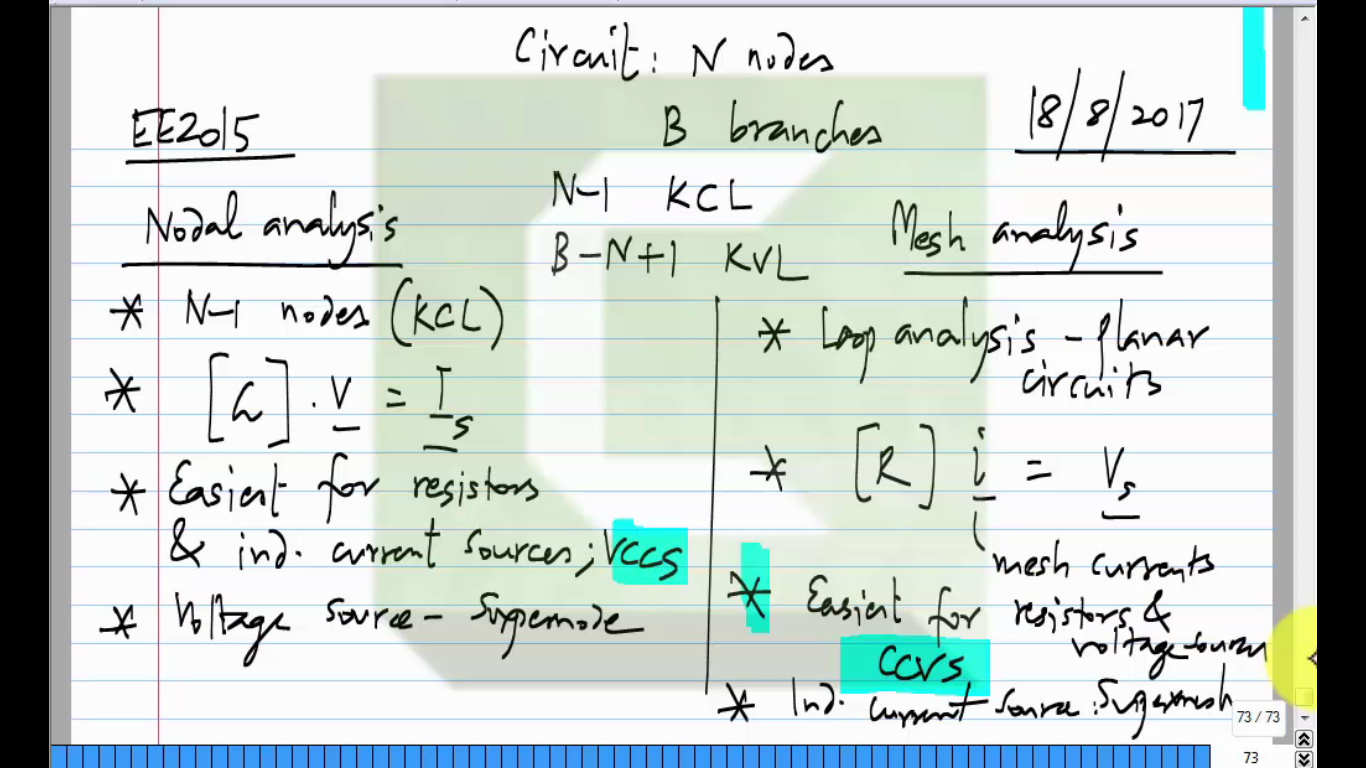 Circuit: N nodes
EE2015
B branches
18/8/2017
N-1 KCL
B-N+1 KVL
Nodal analysis
* N-1 nodes (KCL)
* [G] . V = Is
* Easiest for resistors
& ind. current sources; VCCS
* Voltage source - Supernode
Mesh analysis
* Loop analysis - planar
circuits
* [R] i = Vs
mesh currents
* Easiest for resistors &
voltage-sources
CCVS
* Ind. current source: Supermesh
73 / 73
73